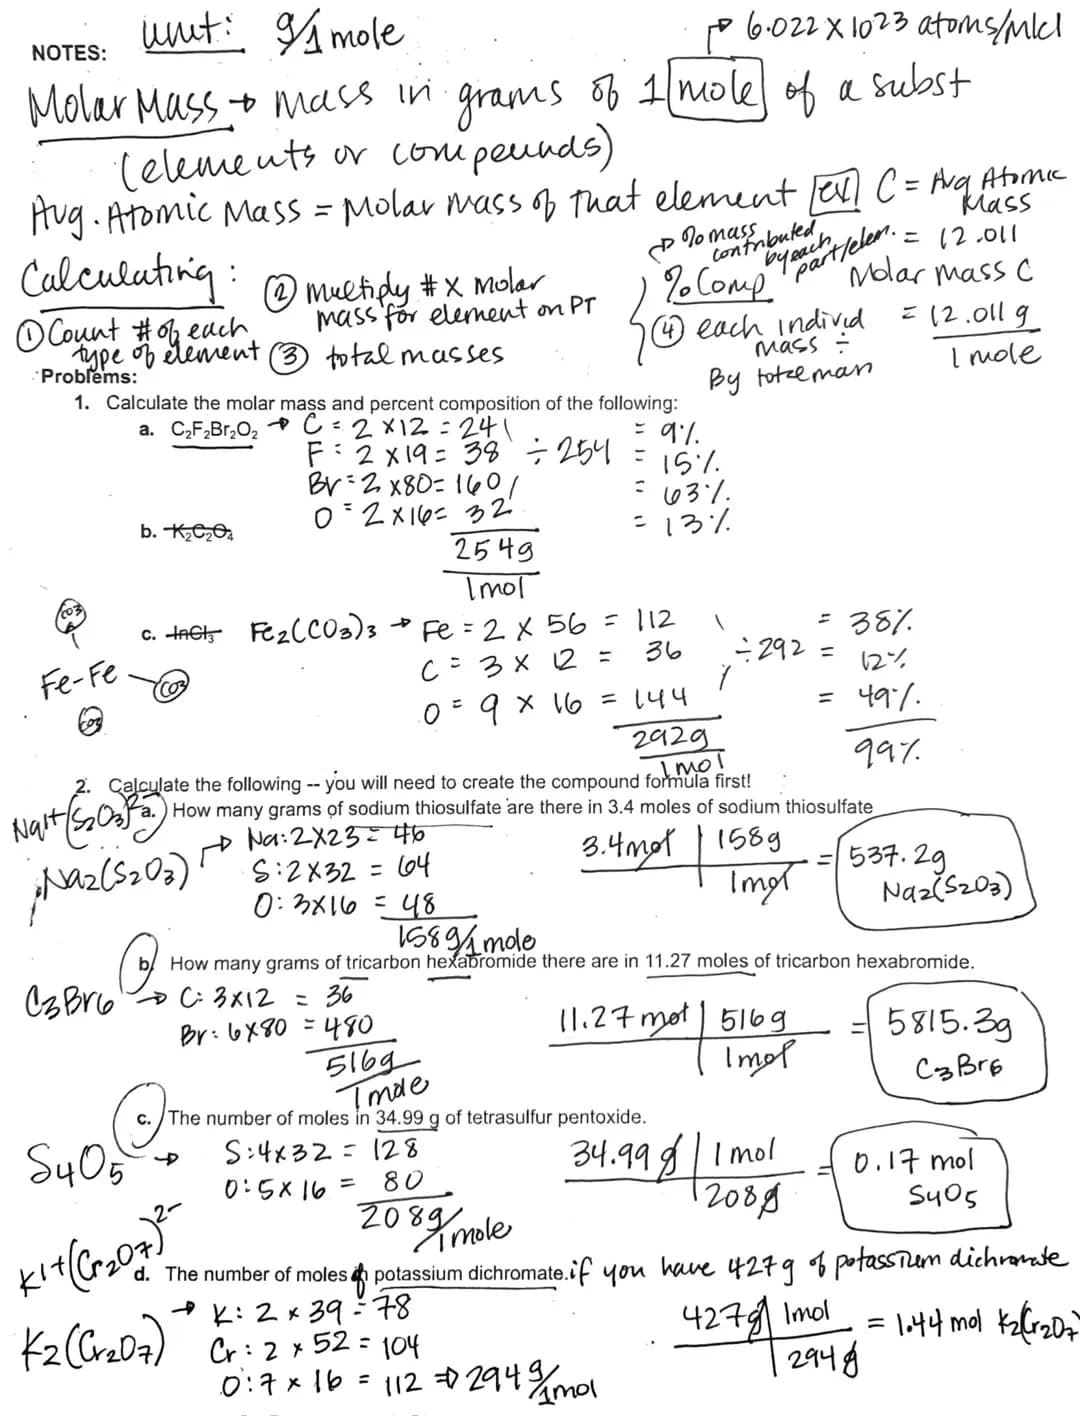 NOTES: unit: g/1 mole
→ 6.022 X 1023 atoms/mlcl
Molar Mass → mass in grams of 1 mole of a subst
(elements or compounds)
Avg. Atomic Mass = Molar mass of that element ex C = Avg Atomic Mass
= 12.011
Molar mass C
= 12.011 g
1 mole
Calculating:
① Count # of each type of element
② multiply # X molar mass for element on PT
③ total masses
% Comp → % mass contributed by each part/elem.
④ each individ mass ÷
By total mass
Problems:
1. Calculate the molar mass and percent composition of the following:
a. C₂F₂Br₂O₂ → C = 2 X12 = 24 = 9%
F = 2 X19 = 38 ÷ 254 = 15%
Br = 2 X80 = 160 = 63%
O = 2 X16 = 32 = 13%
254g
1mol
b. K₂C₂O₄
c. InCl₃ Fe2(CO3)3 → Fe = 2 X 56 = 112 = 38%
C = 3 X 12 = 36 ÷ 292 = 12%
O = 9 X 16 = 144 = 49%
292g 99%
1mol
CO3
Fe-Fe CO3
CO3
2. Calculate the following -- you will need to create the compound formula first!
Na1+(S2O3)2- a. How many grams of sodium thiosulfate are there in 3.4 moles of sodium thiosulfate
Na2(S2O3) → Na: 2X23 = 46
S: 2X32 = 64
O: 3X16 = 48
158g/1mole
3.4mol | 158g = 537.2g
1mol Na2(S2O3)
b. How many grams of tricarbon hexabromide there are in 11.27 moles of tricarbon hexabromide.
C3Br6 → C: 3X12 = 36
Br: 6X80 = 480
516g
1 mole
11.27 mol | 516g = 5815.3g
1mol C3Br6
c. The number of moles in 34.99 g of tetrasulfur pentoxide.
S4O5 → S: 4x32 = 128
O: 5X16 = 80
208g/1mole
34.99 g | 1 mol = 0.17 mol
208g S4O5
K1+(Cr2O7)2-
d. The number of moles of potassium dichromate. if you have 427g of potassium dichromate
K2(Cr2O7) → K: 2 x 39 = 78
Cr: 2 x 52 = 104
O: 7 x 16 = 112 ⇒ 294g/1mol
427g | 1mol = 1.44 mol K2(Cr2O7)
294g